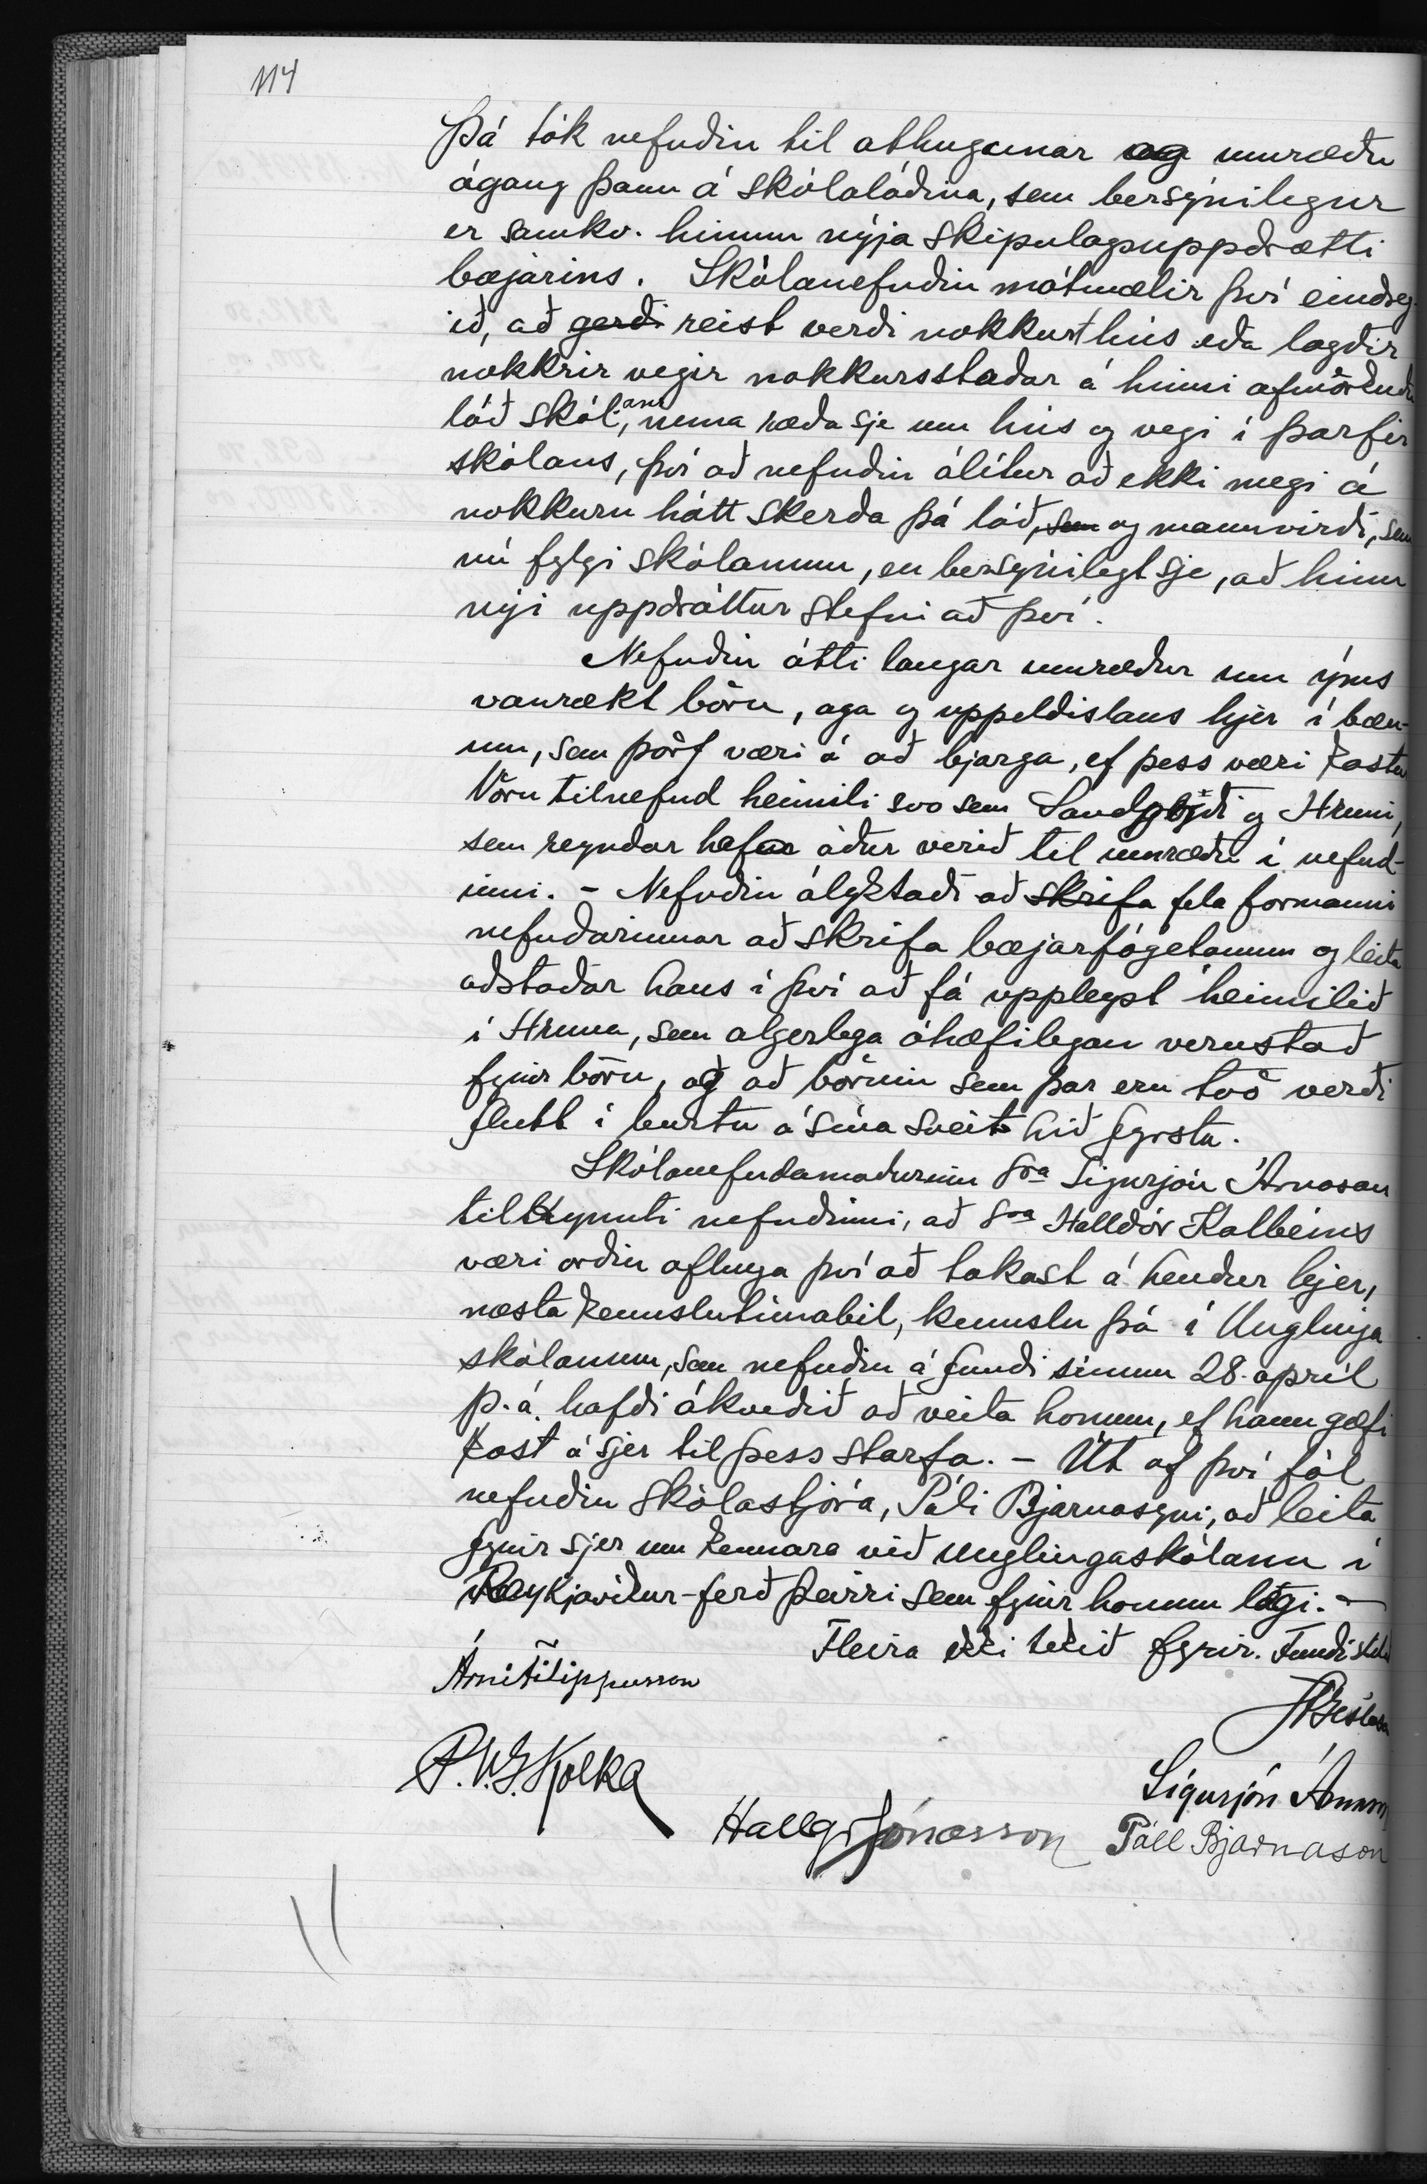 114
Þá tók nefndin til athugunar og umræðu
ágang þann á skólalóðina, sem bersýnilegur
er samkv. hinum nýja skipulagsuppdrætti
bæjarins. Skólanefndin mótmælir því eindreg-
ið, að gerði reist verði nokkurt hús eða lagðir
nokkrir vegir nokkursstaðar á hinni afmörkuðu
lóð skólans, nema ræða sje um hús og vegi í þarfir
skólans, því að nefndin álítur að ekki megi á
nokkurn hátt skerða þá lóð, sem og mannvirði, sem
nú fylgi skólanum, en bersýnilegt sje, að hinn
nýi uppdráttur stefni að því.
Nefndin átti langar umræður um ýms
vanrækt börn, aga og uppeldislaus hjer í bæn-
um, sem þörf væri á að bjarga, ef þess væri kostur
Vöru tilnefnd heimili svo sem og Hruni,
sem reyndar hefur áður verið til umræðu í nefnd-
inni. - Nefndin ályktaði að skrifa fela formanni
nefndarinnar að skrifa bæjarfógetanum og leita
aðstaðar hans í því að fá uppleyst heimilið
í Hruna, sem algerlega óhæfilegan verustað
fyrir börn, og að börnin sem þar eru tvö verði
flutt í burtu á sína sveit hið fyrsta.
Skólanefndamaðurinn sra Sigurjón Árnason
tilkynnti nefndinni, að sra Halldór Kolbeins
væri orðin afhuga því að takast á hendur hjer,
næsta kennslutímabil, kennslu þá í Unglinga
skólanum, sem nefndin á fundi sínum 28. apríl
þ.á. hafði ákveðið að veita honum, ef hann gæfi
kost á sjer til þess starfa. - Út af því fól
nefndin skólastjóra, Páli Bjarnasyni, að leita
fyrir sjer um kennara við unglingaskólann í
Reykjavíkur-ferð þeirri sem fyrir honum lægi. -
Fleira ekki tekið fyrir. Fundi slitið
Árni Filippusson
P.V.G. Kolka
Sigurjón Árnason
Hallgr Jónasson
Páll Bjarnason